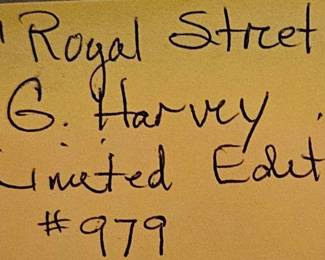 "Royal Street
G. Harvey.
Limited Edit
#979